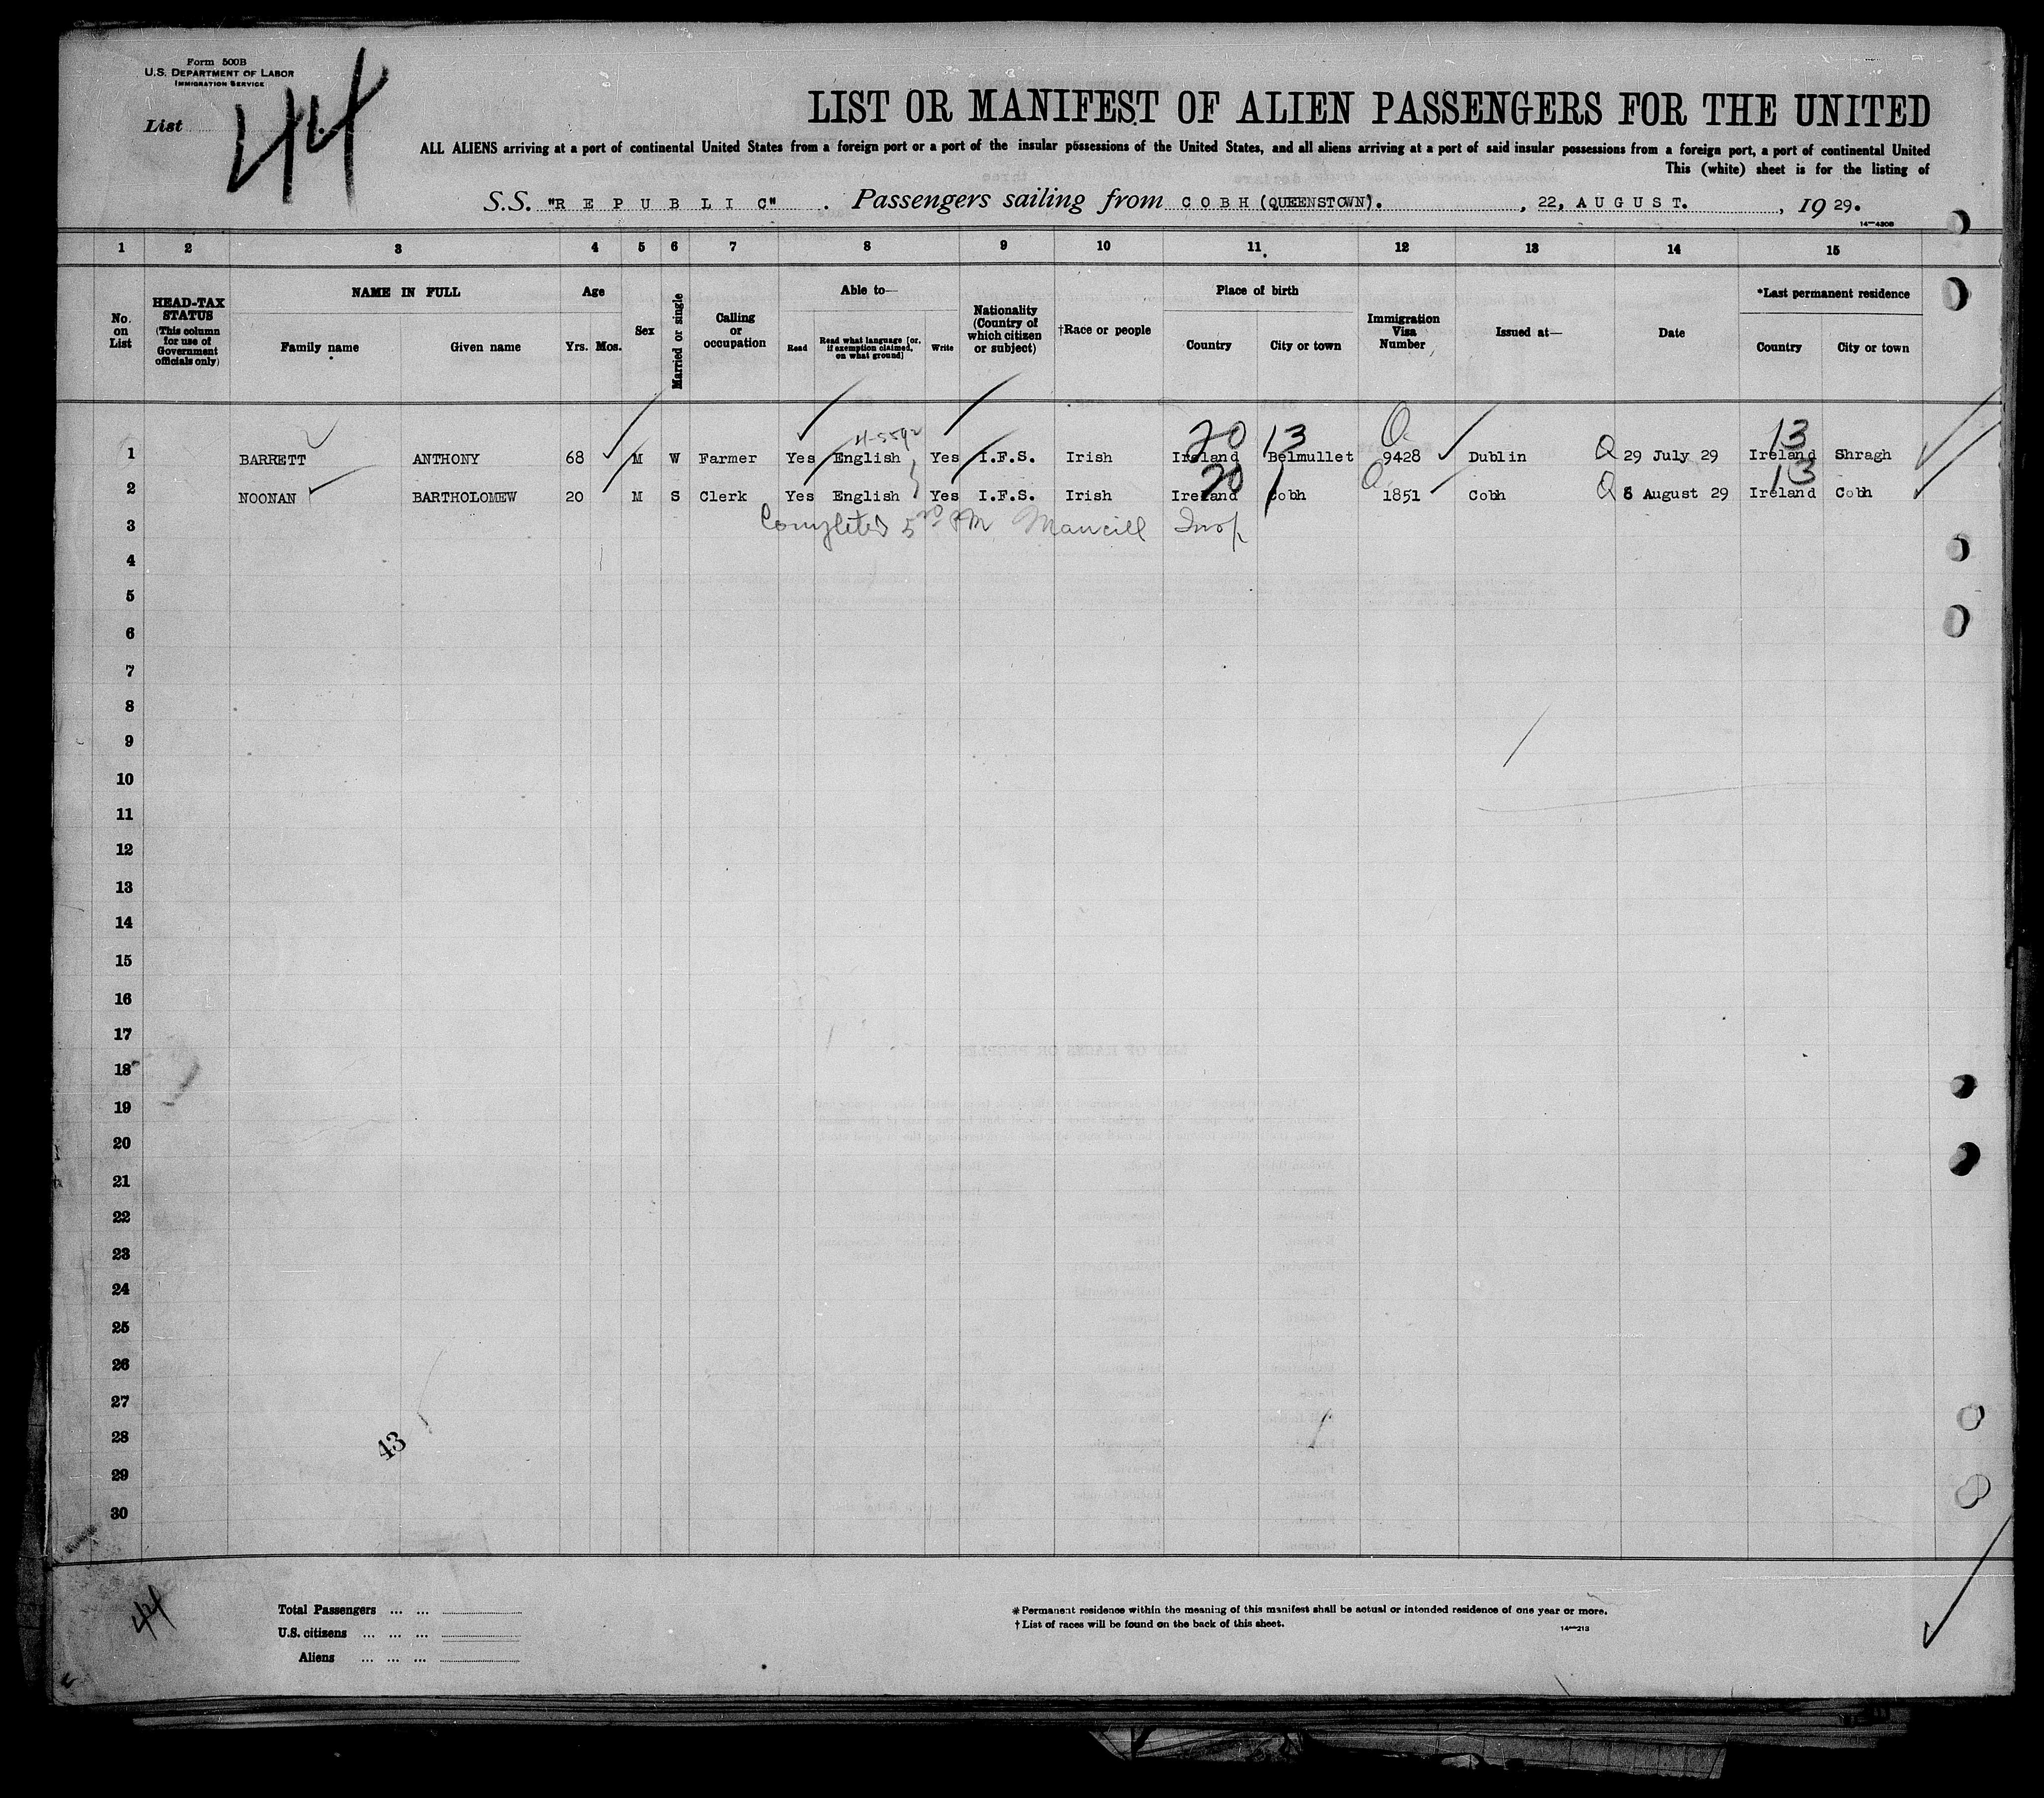 Form 500B
U.S. DEPARTMENT OF LABOR
IMMIGRATION SERVICE
List 44
LIST OR MANIFEST OF ALIEN PASSENGERS FOR THE UNITED
ALL ALIENS arriving at a port of continental United States from a foreign port or a port of the insular possessions of the United States, and all aliens arriving at a port of said insular possessions from a foreign port, a port of continental United
This (white) sheet is for the listing of
S.S. "R E P U B L I C". Passengers sailing from COBH (QUEENSTOWN)., 22, AUGUST., 19 29.
14—4208
1 2 3 4 5 6 7 8 9 10 11 12 13 14 15
No. on List
HEAD-TAX STATUS (This column for use of Government officials only)
NAME IN FULL
Family name Given name
Age
Yrs. Mos.
Sex
Married or single
Calling or occupation
Able to—
Read Read what language [or, if exemption claimed, on what ground] Write
Nationality (Country of which citizen or subject)
†Race or people
Place of birth
Country City or town
Immigration Visa Number
Issued at—
Date
*Last permanent residence
Country City or town
4-5592
20 13 Q 13
1 BARRETT ANTHONY 68 M W Farmer Yes English Yes I.F.S. Irish Ireland Belmullet 9428 Dublin Q 29 July 29 Ireland Shragh
20 1 Q 13
2 NOONAN BARTHOLOMEW 20 M S Clerk Yes English Yes I.F.S. Irish Ireland Cobh 1851 Cobh Q 8 August 29 Ireland Cobh
3 Completed 5 20 PM Mancill Insp
4
5
6
7
8
9
10
11
12
13
14
15
16
17
18
19
20
21
22
23
24
25
26
27
28
29
30
43
44
Total Passengers ... ...
U.S. citizens ... ... ...
Aliens ... ... ...
*Permanent residence within the meaning of this manifest shall be actual or intended residence of one year or more.
†List of races will be found on the back of this sheet.
14—213